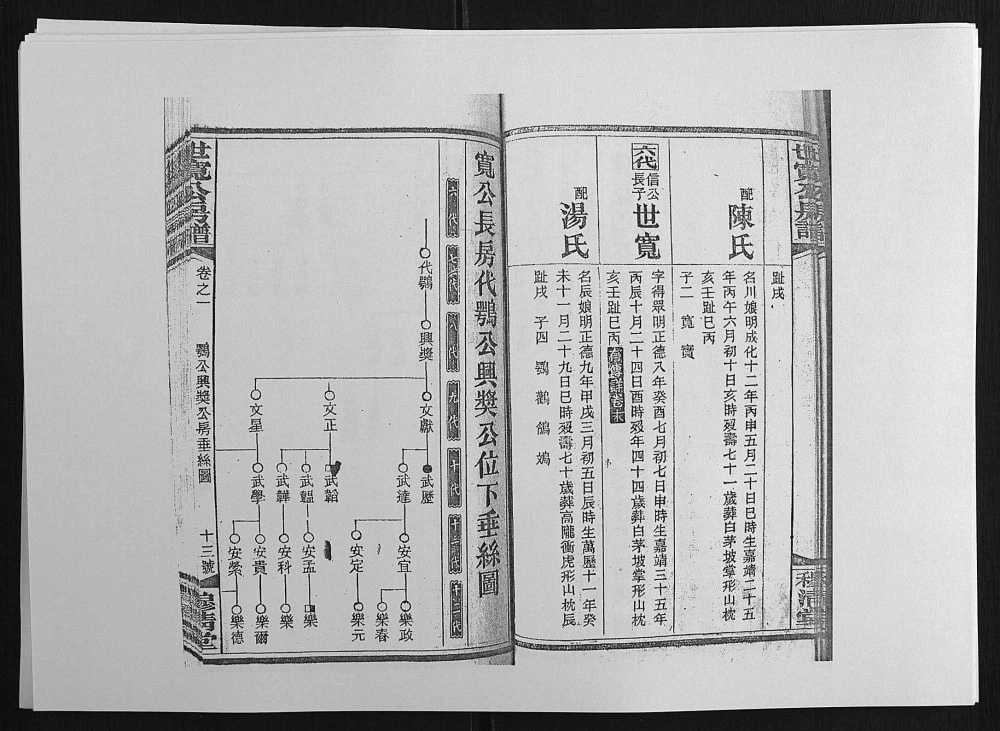 世寬公房譜
趾戌
配陳氏
名川娘明成化十二年丙申五月二十日巳時生嘉靖二十五
年丙午六月初十日亥時歿壽七十一歲葬白茅坡掌形山枕
亥壬趾巳丙
子二 寬 寶
六代 信公長子 世寬
字得眾明正德八年癸酉七月初七日申時生嘉靖三十五年
丙辰十月二十四日酉時歿年四十四歲葬白茅坡掌形山枕
亥壬趾巳丙
配湯氏
名辰娘明正德九年甲戌三月初五日辰時生萬歷十一年癸
未十一月二十九日巳時歿壽七十歲葬高隴衝虎形山枕辰
趾戌 子四 鶚 鸛 鴿 鴻
寬公長房代鶚公興獎公位下垂絲圖
六代 七代 八代 九代 十代 十一代 十二代
代鶚
興獎
文獻 文正 文星
武歷 武達 武韜 武韞 武韡 武學
安宣 安定 安孟 安科 安貴 安榮
樂政 樂春 樂元 樂 樂 樂爾 樂德
世寬公房譜
卷之一
鶚公興獎公房垂絲圖
十三號